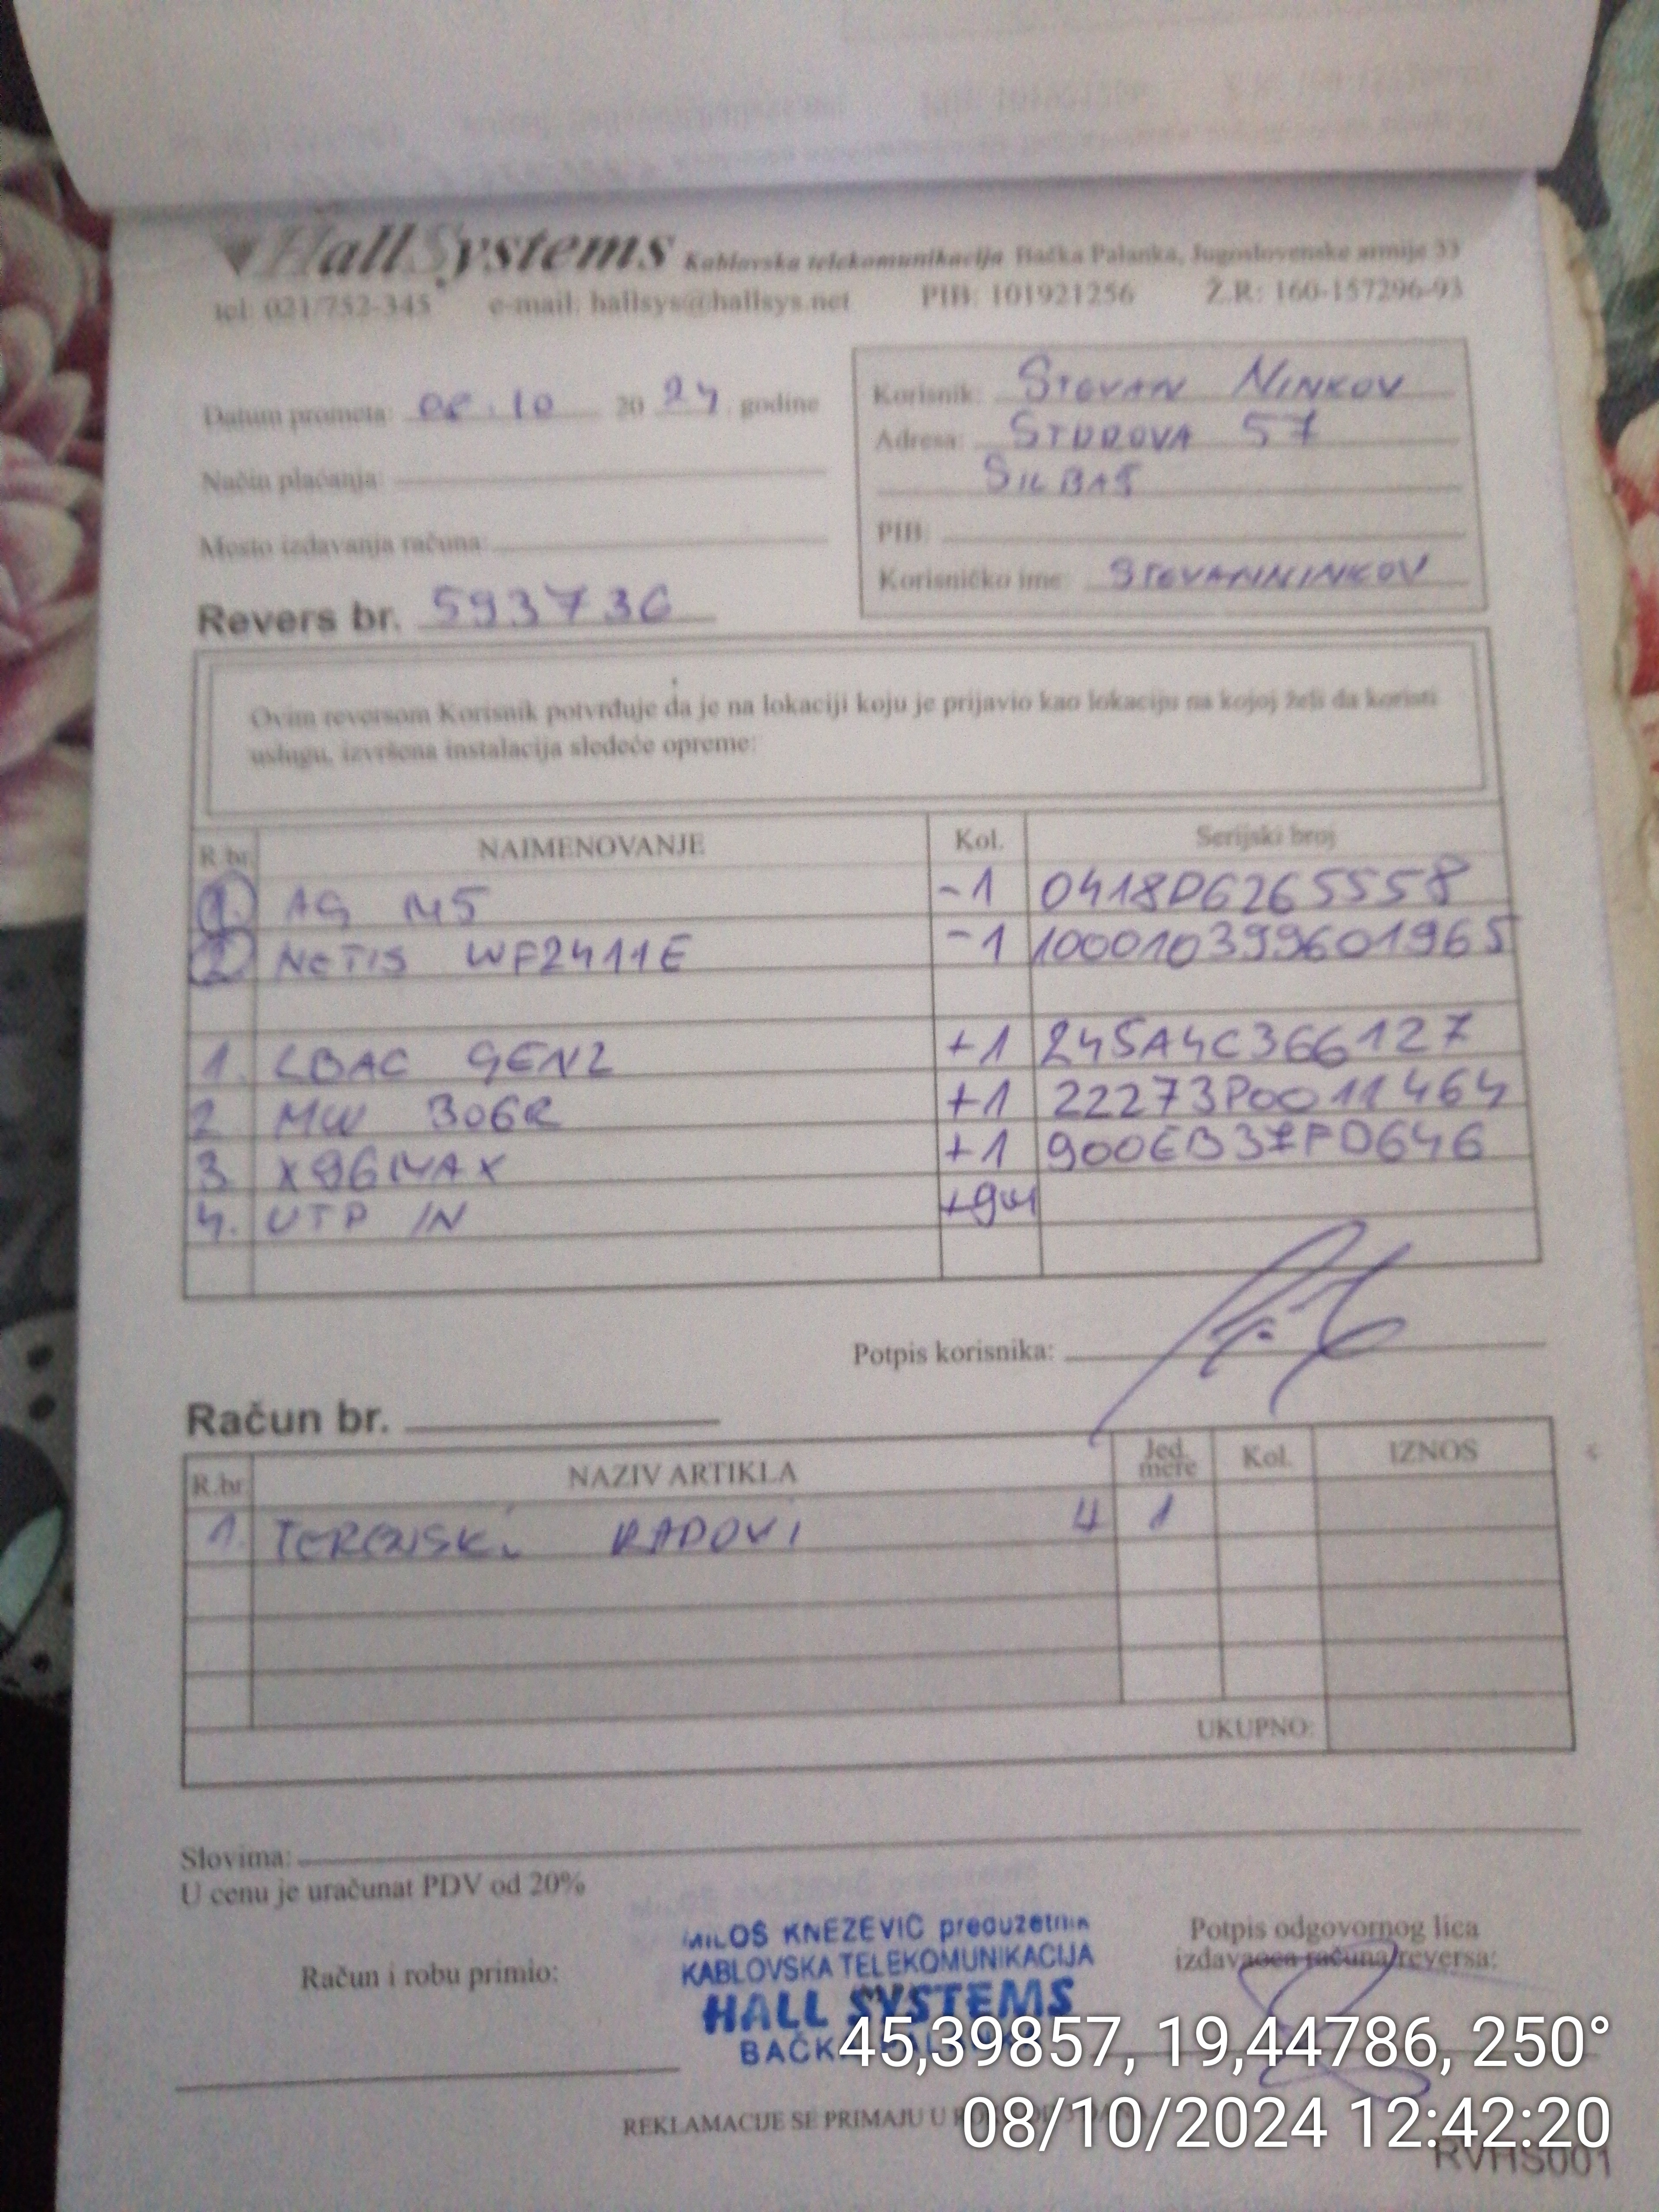 HallSystems Kablovska telekomunikacija Bačka Palanka, Jugoslovenske armije 33
tel: 021/752-345 e-mail: hallsys@hallsys.net PIB: 101921256 Ž.R: 160-157296-93
Datum prometa: 08.10 20 24 godine
Način plaćanja:
Mesto izdavanja računa:
Revers br. 593736
Korisnik: STEVAN NINKOV
Adresa: ŠTUROVA 57
SILBAŠ
PIB:
Korisničko ime: STEVANNINKOV
Ovim reversom Korisnik potvrđuje da je na lokaciji koju je prijavio kao lokaciju na kojoj želi da koristi
uslugu, izvršena instalacija sledeće opreme:
R.br. NAIMENOVANJE Kol. Serijski broj
1. AG M5 -1 0418D6265558
2. NETIS WF2411E -1 100010399601965
1. LBAC GEN2 +1 245A4C366127
2 MW 306R +1 22273P0011464
3 X96MAX +1 900EB37FD646
4. UTP IN +9m
Potpis korisnika:
Račun br.
R.br. NAZIV ARTIKLA Jed. mere Kol. IZNOS
1. TERENSKI RADOVI 4 1
UKUPNO:
Slovima:
U cenu je uračunat PDV od 20%
Račun i robu primio:
MILOŠ KNEŽEVIĆ preduzetnik
KABLOVSKA TELEKOMUNIKACIJA
HALL SYSTEMS
Potpis odgovornog lica
izdavaoca računa/reversa:
45,39857, 19,44786, 250°
REKLAMACIJE SE PRIMAJU U
08/10/2024 12:42:20
RVHS001